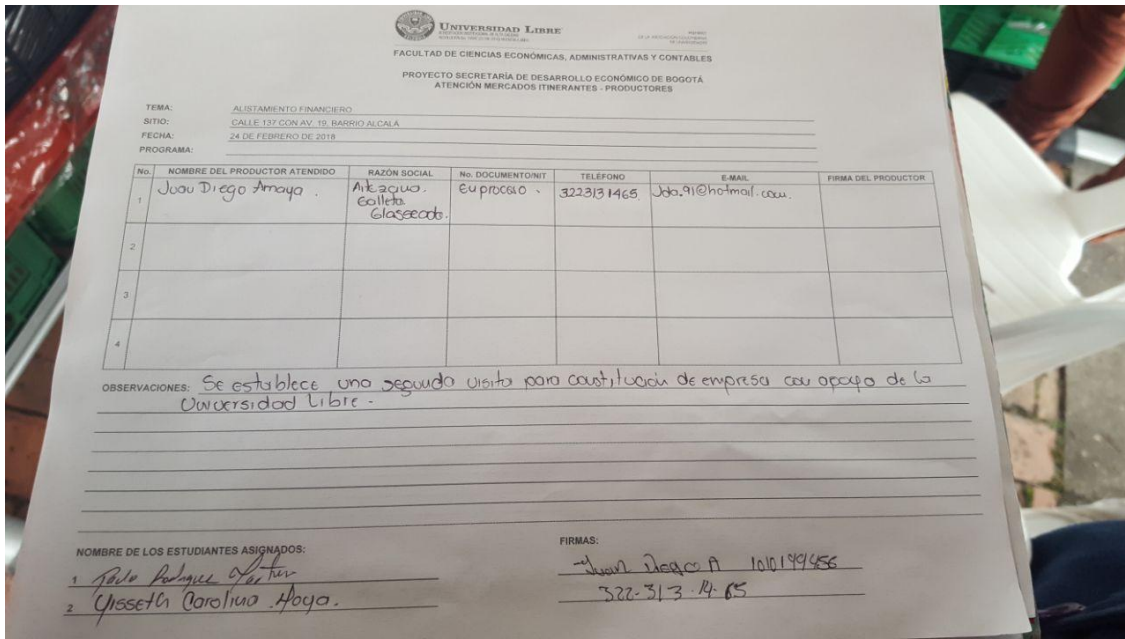 UNIVERSIDAD LIBRE
FACULTAD DE CIENCIAS ECONÓMICAS, ADMINISTRATIVAS Y CONTABLES
PROYECTO SECRETARÍA DE DESARROLLO ECONÓMICO DE BOGOTÁ
ATENCIÓN MERCADOS ITINERANTES - PRODUCTORES
TEMA: ALISTAMIENTO FINANCIERO
SITIO: CALLE 137 CON AV. 19, BARRIO ALCALA
FECHA: 24 DE FEBRERO DE 2018
PROGRAMA:
No. NOMBRE DEL PRODUCTOR ATENDIDO RAZÓN SOCIAL No. DOCUMENTO/NIT TELÉFONO E-MAIL FIRMA DEL PRODUCTOR
1 Juan Diego Amaya. Galleta Glaseada. En proceso. 3223131465. Jda.91@hotmail.com.
2
3
4
OBSERVACIONES: Se establece una segunda visita para constitución de empresa con apoyo de la
Universidad Libre.
NOMBRE DE LOS ESTUDIANTES ASIGNADOS:
FIRMAS:
1
Juan Diego A
2 Yisseth Carolina Moya.
322-313-14-65